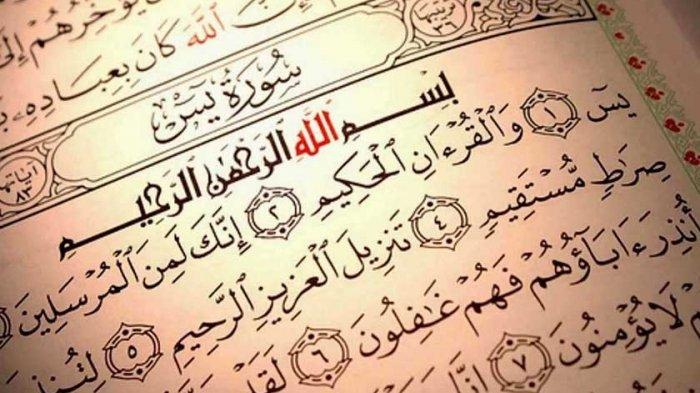 يُؤَخِّرُهُمْ إِلَىٰٓ
إِنَّ ٱللَّهَ كَانَ بِعِبَادِهِۦ
سُورَةُ يسٓ
آياتها ٨٣
بِسْمِ ٱللَّهِ ٱلرَّحْمَٰنِ ٱلرَّحِيمِ
يسٓ ١ وَٱلْقُرْءَانِ ٱلْحَكِيمِ ٢ إِنَّكَ لَمِنَ ٱلْمُرْسَلِينَ
صِرَٰطٍ مُّسْتَقِيمٍ ٤ تَنزِيلَ ٱلْعَزِيزِ ٱلرَّحِيمِ ٥
أُنذِرَ ءَابَآؤُهُمْ فَهُمْ غَٰفِلُونَ ٦
لَا يُؤْمِنُونَ ٧ إِنَّا